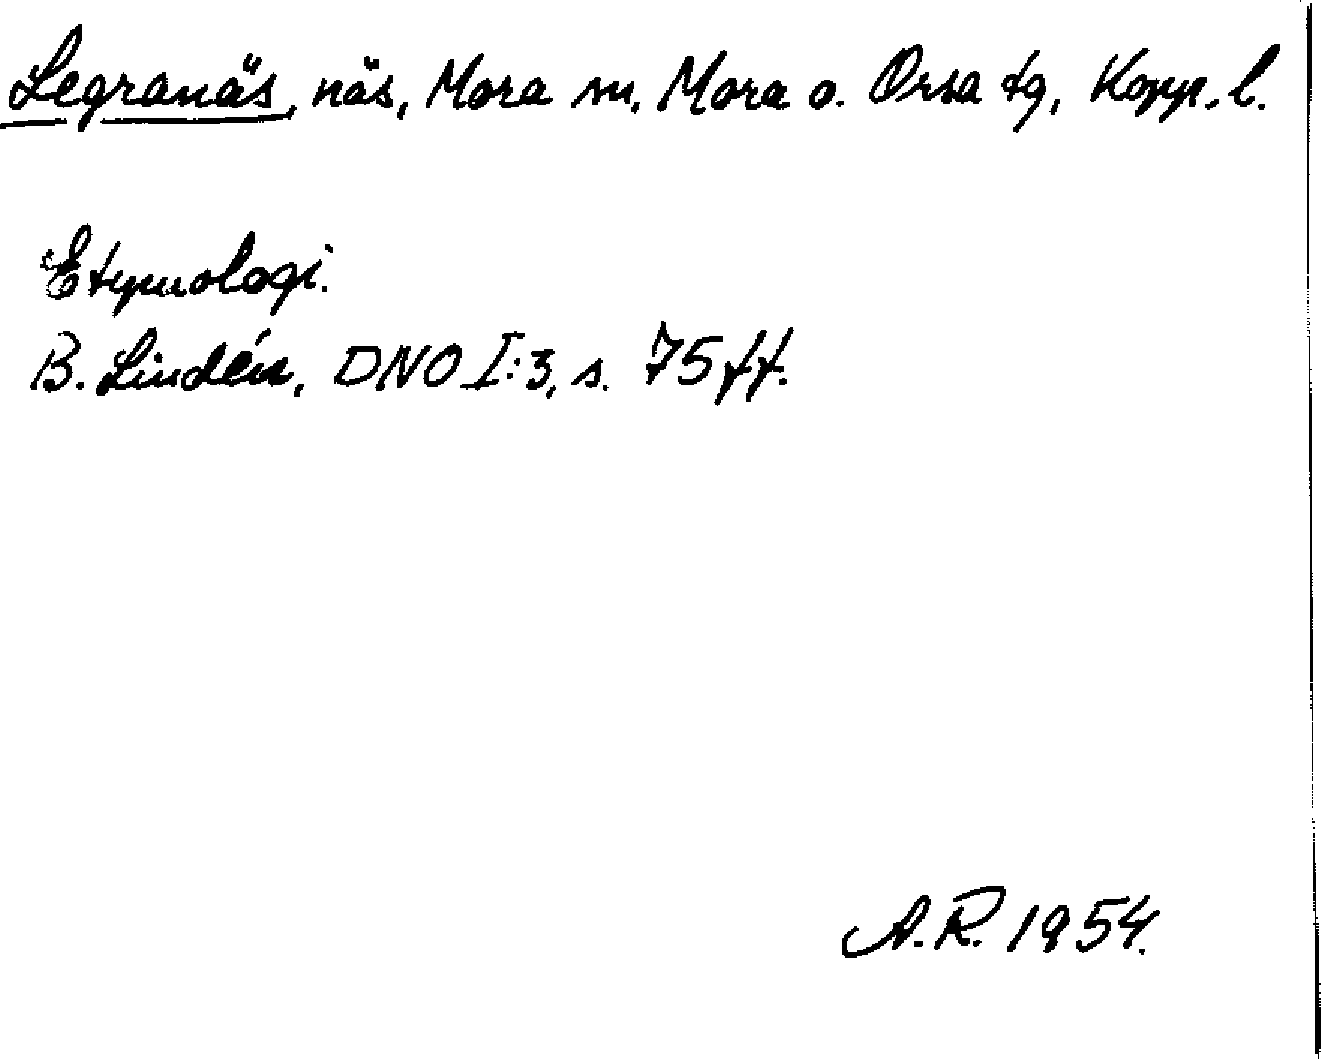 Legranäs, näs, Mora sn, Mora o. Orsa tg, Kopp. l.
Etymologi.
B. Lindén, DNO I:3, s. 75 ff.
A.R. 1954.